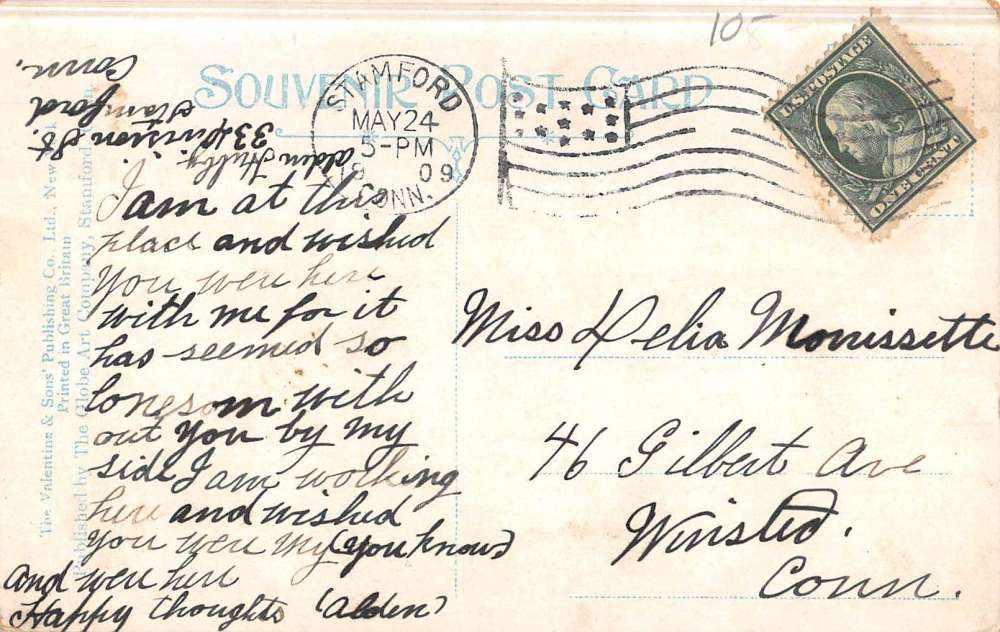 105
SOUVENIR POST CARD
STAMFORD
MAY 24
5-PM
19 09
CONN.
U.S. POSTAGE
ONE CENT
Alden
33 Division St.
Stamford
Conn.
I am at this
place and wished
You were here
with me for it
has seemed so
lonesom with
out You by my
side I am working
here and wished
you were my (you know)
and were here
Happy thoughts (Alden)
Miss Delia Morrissette
46 Gilbert Ave
Winsted.
Conn.
The Valentine & Sons' Publishing Co., Ltd., New
Printed in Great Britain
Published by The Globe Art Company, Stamford